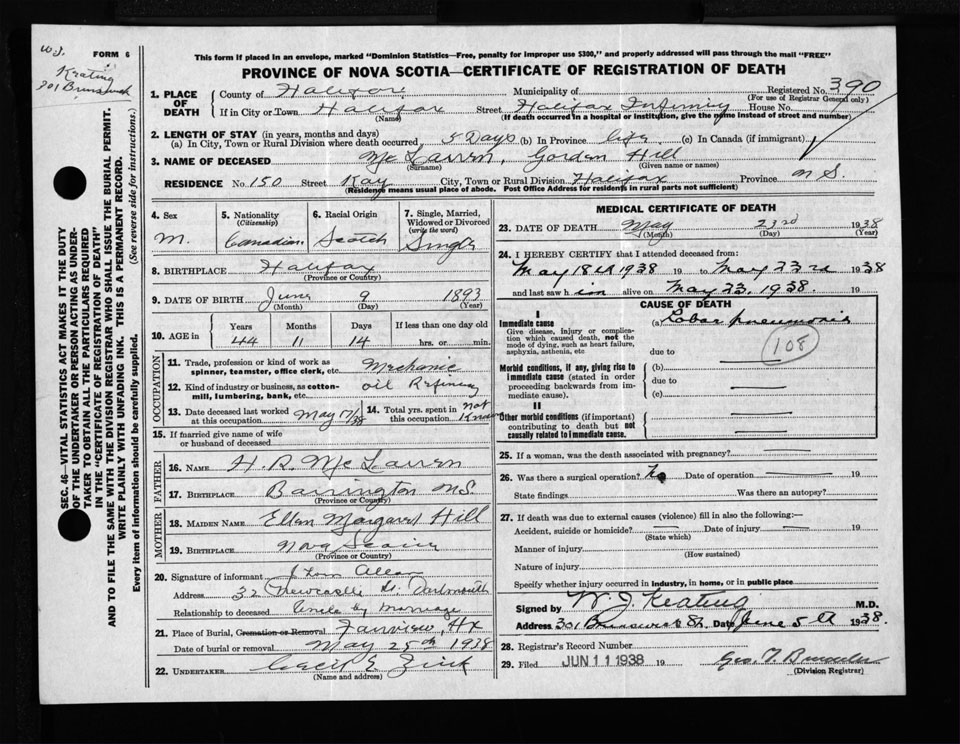 W.J. Keating
301 Brunswick
FORM 6
This form if placed in an envelope, marked "Dominion Statistics—Free, penalty for improper use $300," and properly addressed will pass through the mail "FREE"
PROVINCE OF NOVA SCOTIA—CERTIFICATE OF REGISTRATION OF DEATH
SEC. 46—VITAL STATISTICS ACT MAKES IT THE DUTY
OF THE UNDERTAKER OR PERSON ACTING AS UNDER-
TAKER TO OBTAIN ALL THE PARTICULARS REQUIRED
IN THE "CERTIFICATE OF REGISTRATION OF DEATH"
AND TO FILE THE SAME WITH THE DIVISION REGISTRAR WHO SHALL ISSUE THE BURIAL PERMIT.
WRITE PLAINLY WITH UNFADING INK. THIS IS A PERMANENT RECORD.
Every item of information should be carefully supplied. (See reverse side for instructions.)
1. PLACE OF DEATH
County of Halifax Municipality of Registered No. 390
(For use of Registrar General only)
If in City or Town Halifax Street Halifax Infirmary House No.
(Name) (If death occurred in a hospital or institution, give the name instead of street and number)
2. LENGTH OF STAY (in years, months and days)
(a) In City, Town or Rural Division where death occurred, 5 Days (b) In Province life (c) In Canada (if immigrant)
3. NAME OF DECEASED McLarren, Gorden Hill
(Surname) (Given name or names)
RESIDENCE No. 150 Street Kay City, Town or Rural Division Halifax Province N S.
(Residence means usual place of abode. Post Office Address for residents in rural parts not sufficient)
4. Sex
M.
5. Nationality
(Citizenship)
Canadian
6. Racial Origin
Scotch
7. Single, Married,
Widowed or Divorced
(write the word)
Single
8. BIRTHPLACE Halifax
(Province or Country)
9. DATE OF BIRTH June 9 1893
(Month) (Day) (Year)
10. AGE in Years Months Days If less than one day old
44 11 14 hrs. or min.
OCCUPATION
11. Trade, profession or kind of work as
spinner, teamster, office clerk, etc. Mechanic
12. Kind of industry or business, as cotton-
mill, lumbering, bank, etc. oil Refinery
13. Date deceased last worked
at this occupation May 17/38
14. Total yrs. spent in
this occupation not Known
15. If married give name of wife
or husband of deceased
FATHER
16. NAME H. R. McLarren
17. BIRTHPLACE Barrington N.S.
(Province or Country)
MOTHER
18. MAIDEN NAME Ellen Margaret Hill
19. BIRTHPLACE Nova Scotia
(Province or Country)
20. Signature of informant Allan
Address 32 Newcastle St. Dartmouth
Relationship to deceased Uncle by marriage
21. Place of Burial, Cremation or Removal Fairview, Hx
Date of burial or removal May 25th 1938
22. UNDERTAKER Cecil E Zink
(Name and address)
MEDICAL CERTIFICATE OF DEATH
23. DATE OF DEATH May 23rd 1938
(Month) (Day) (Year)
24. I HEREBY CERTIFY that I attended deceased from:
May 18th 1938 19 to May 23rd 1938
and last saw him alive on May 23, 1938.
CAUSE OF DEATH
I
Immediate cause
Give disease, injury or complica-
tion which caused death, not the
mode of dying, such as heart failure,
asphyxia, asthenia, etc
(a) Lobar pneumonia
108
due to
Morbid conditions, if any, giving rise to
immediate cause (stated in order
proceeding backwards from im-
mediate cause).
(b)
due to
(c)
II
Other morbid conditions (if important)
contributing to death but not
causally related to immediate cause.
25. If a woman, was the death associated with pregnancy?
26. Was there a surgical operation? No Date of operation 19
State findings Was there an autopsy?
27. If death was due to external causes (violence) fill in also the following:—
Accident, suicide or homicide? Date of injury 19
(State which)
Manner of injury
(How sustained)
Nature of injury
Specify whether injury occurred in industry, in home, or in public place
Signed by W. J. Keating M.D.
Address 301 Brunswick St. Date June 5th 1938.
28. Registrar's Record Number
29. Filed JUN 11 1938 19
(Division Registrar)